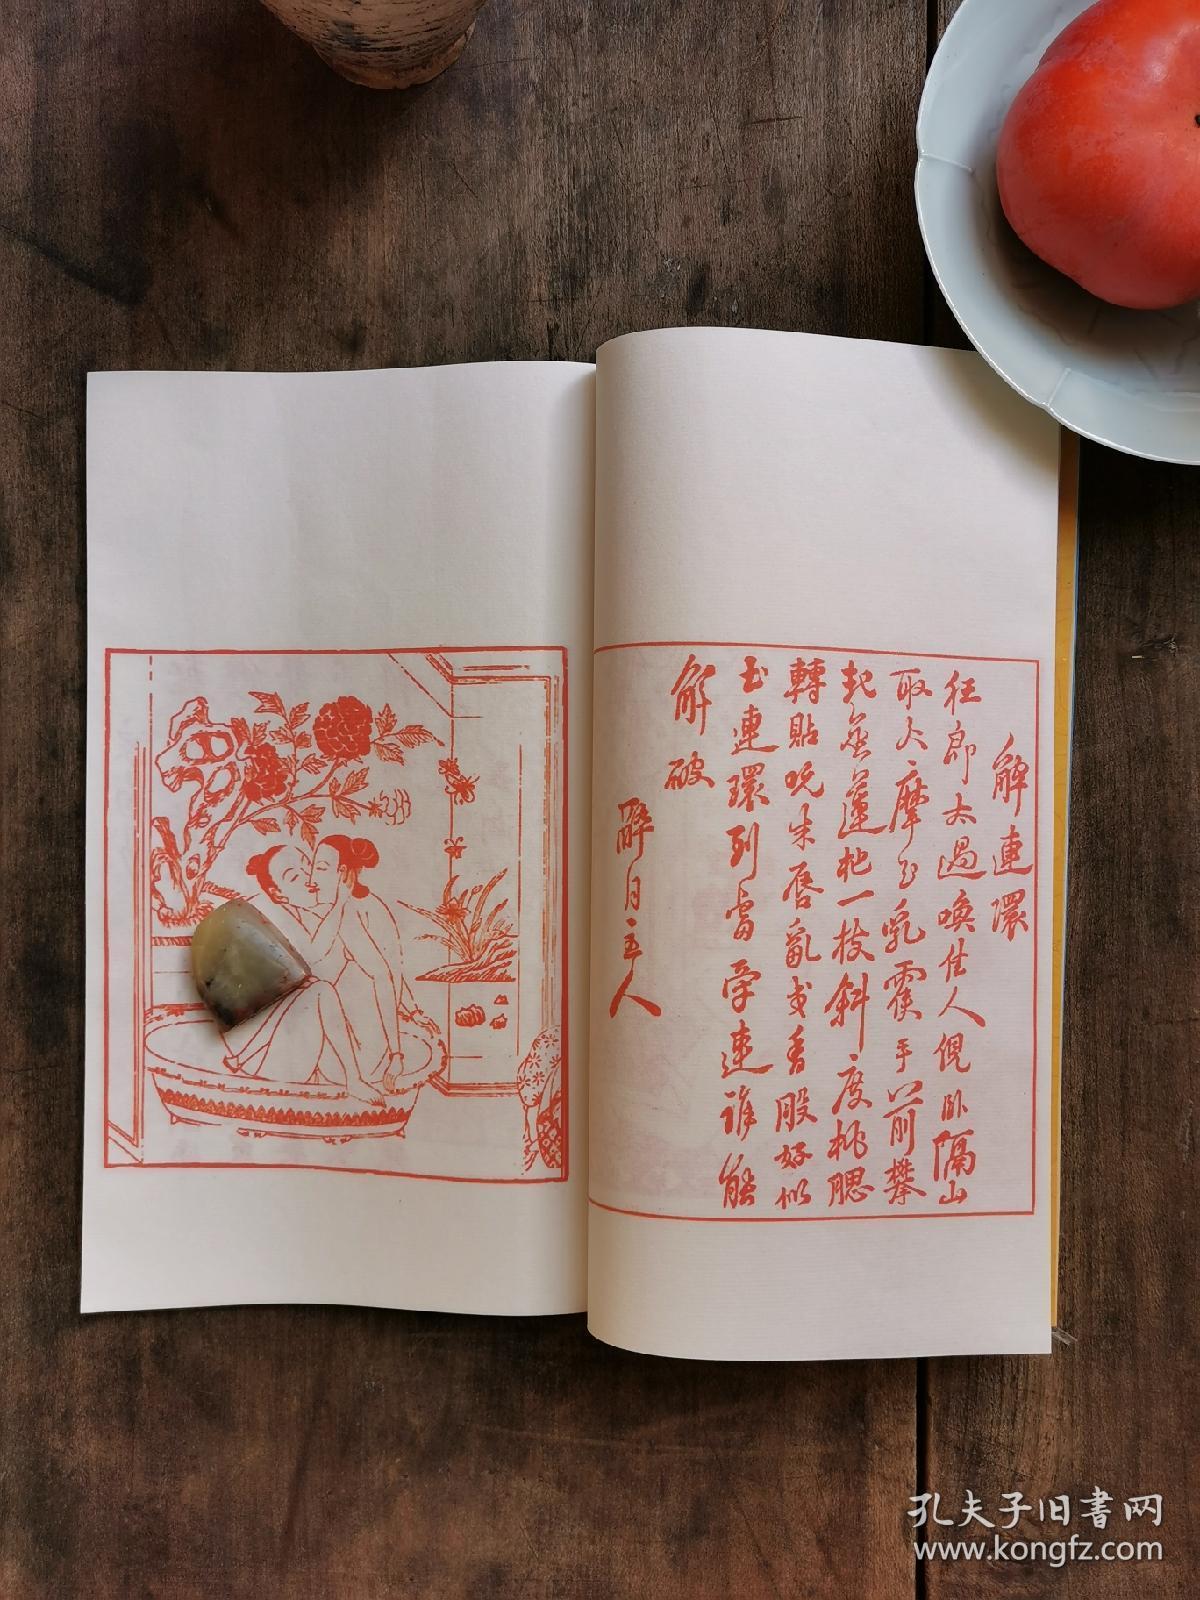 解連環
狂郎太過喚佳人俔卧隔山
取火摩玉乳霍手以前攀
起並蓮杷一枝斜度桃腮
轉貼吮朱唇亂或香股好似
玉連環列當牢連誰能
解破
醉月主人
孔夫子旧書网
www.kongfz.com